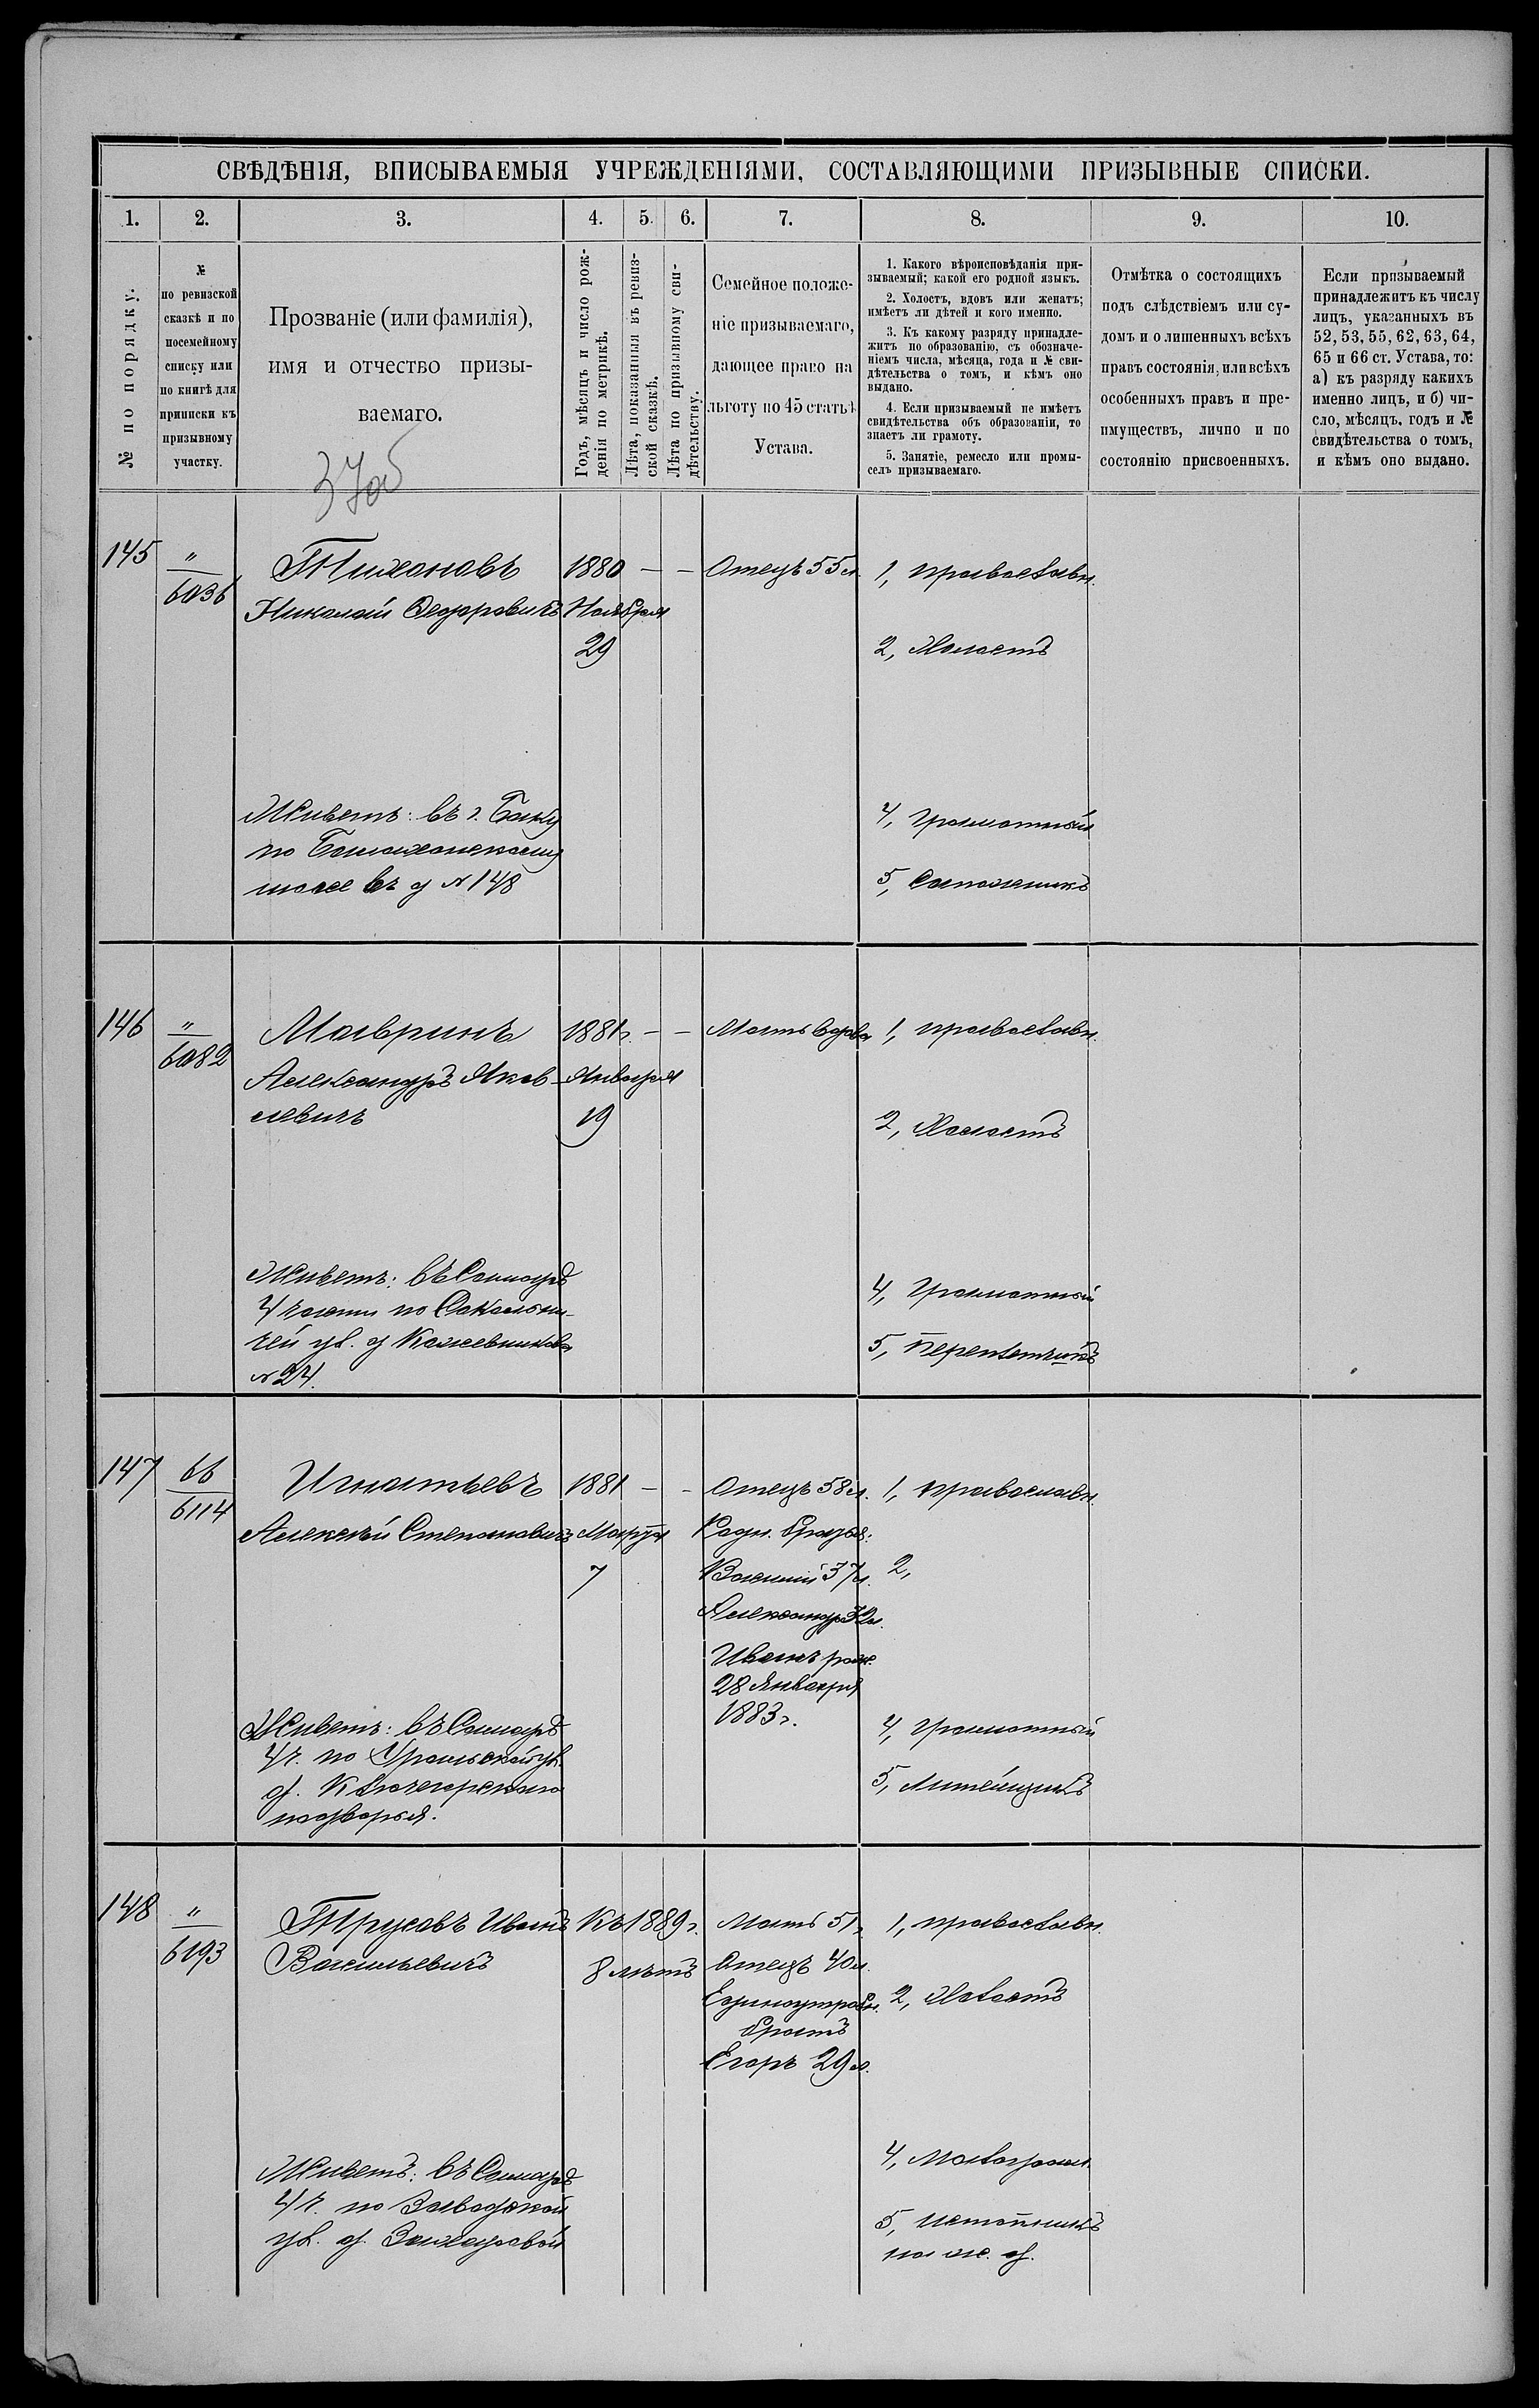 СВѢДѢНІЯ, ВПИСЫВАЕМЫЯ УЧРЕЖДЕНІЯМИ, СОСТАВЛЯЮЩИМИ ПРИЗЫВНЫЕ СПИСКИ.
1. 2. 3. 4. 5. 6. 7. 8. 9. 10.
№ по порядку.
№
по ревизской
сказкѣ и по
посемейному
списку или
по книгѣ для
приписки къ
призывному
участку.
Прозваніе (или фамилія),
имя и отчество призы-
ваемаго.
Годъ, мѣсяцъ и число рож-
денія по метрикѣ.
Лѣта, показанныя въ ревиз-
ской сказкѣ.
Лѣта по призывному сви-
дѣтельству.
Семейное положе-
ніе призываемаго,
дающее право на
льготу по 45 статьѣ
Устава.
1. Какого вѣроисповѣданія при-
зываемый; какой его родной языкъ.
2. Холостъ, вдовъ или женатъ;
имѣетъ ли дѣтей и кого именно.
3. Къ какому разряду принадле-
житъ по образованію, съ обозначе-
ніемъ числа, мѣсяца, года и № сви-
дѣтельства о томъ, и кѣмъ оно
выдано.
4. Если призываемый не имѣетъ
свидѣтельства объ образованіи, то
знаетъ ли грамоту.
5. Занятіе, ремесло или промы-
селъ призываемаго.
Отмѣтка о состоящихъ
подъ слѣдствіемъ или су-
домъ и о лишенныхъ всѣхъ
правъ состоянія, или всѣхъ
особенныхъ правъ и пре-
имуществъ, лично и по
состоянію присвоенныхъ.
Если призываемый
принадлежитъ къ числу
лицъ, указанныхъ въ
52, 53, 55, 62, 63, 64,
65 и 66 ст. Устава, то:
а) къ разряду какихъ
именно лицъ, и б) чи-
сло, мѣсяцъ, годъ и №
свидѣтельства о томъ,
и кѣмъ оно выдано.
145 " Тихоновъ 1880 — — Отецъ 55 л. 1, православн.
6036 Николай Ѳедоровичъ Ноября
29 2, Холостъ
Живетъ: въ г. Баку
по Балаханскому
шоссе въ д № 148
4, Грамотный
5, Сапожникъ
146 " Мавринъ 1881 г. — — Мать вдова 1, православн.
6082 Александръ Яков- Января
левичъ 19 2, Холостъ
Живетъ: въ Самарѣ
4 части по Сокольни-
чей ул. д Кожевникова
№ 24.
4, Грамотный
5, Переплетчикъ
147 66 Игнатьевъ 1881 — — Отецъ 58 л. 1, православн.
6114 Алексѣй Степановичъ Марта Родн. братья:
7 Василій 37 л. 2,
Александръ 32 л.
Иванъ рож.
28 Января
1883 г.
Живетъ: въ Самарѣ
4 ч. по Уральской ул.
д. Ключегорскаго
подворья.
4, Грамотный
5, Литейщикъ
148 " Трусовъ Иванъ Къ 1889 г. Мать 51, 1, православн.
6193 Васильевичъ 8 лѣтъ Отецъ 40 л.
Единоутробн. 2, Холостъ
братъ
Егоръ 29 л.
Живетъ: въ Самарѣ
4 ч. по Заводской
ул. д. Захаровой
4, Малограм.
5, истопникъ
на ж. д.